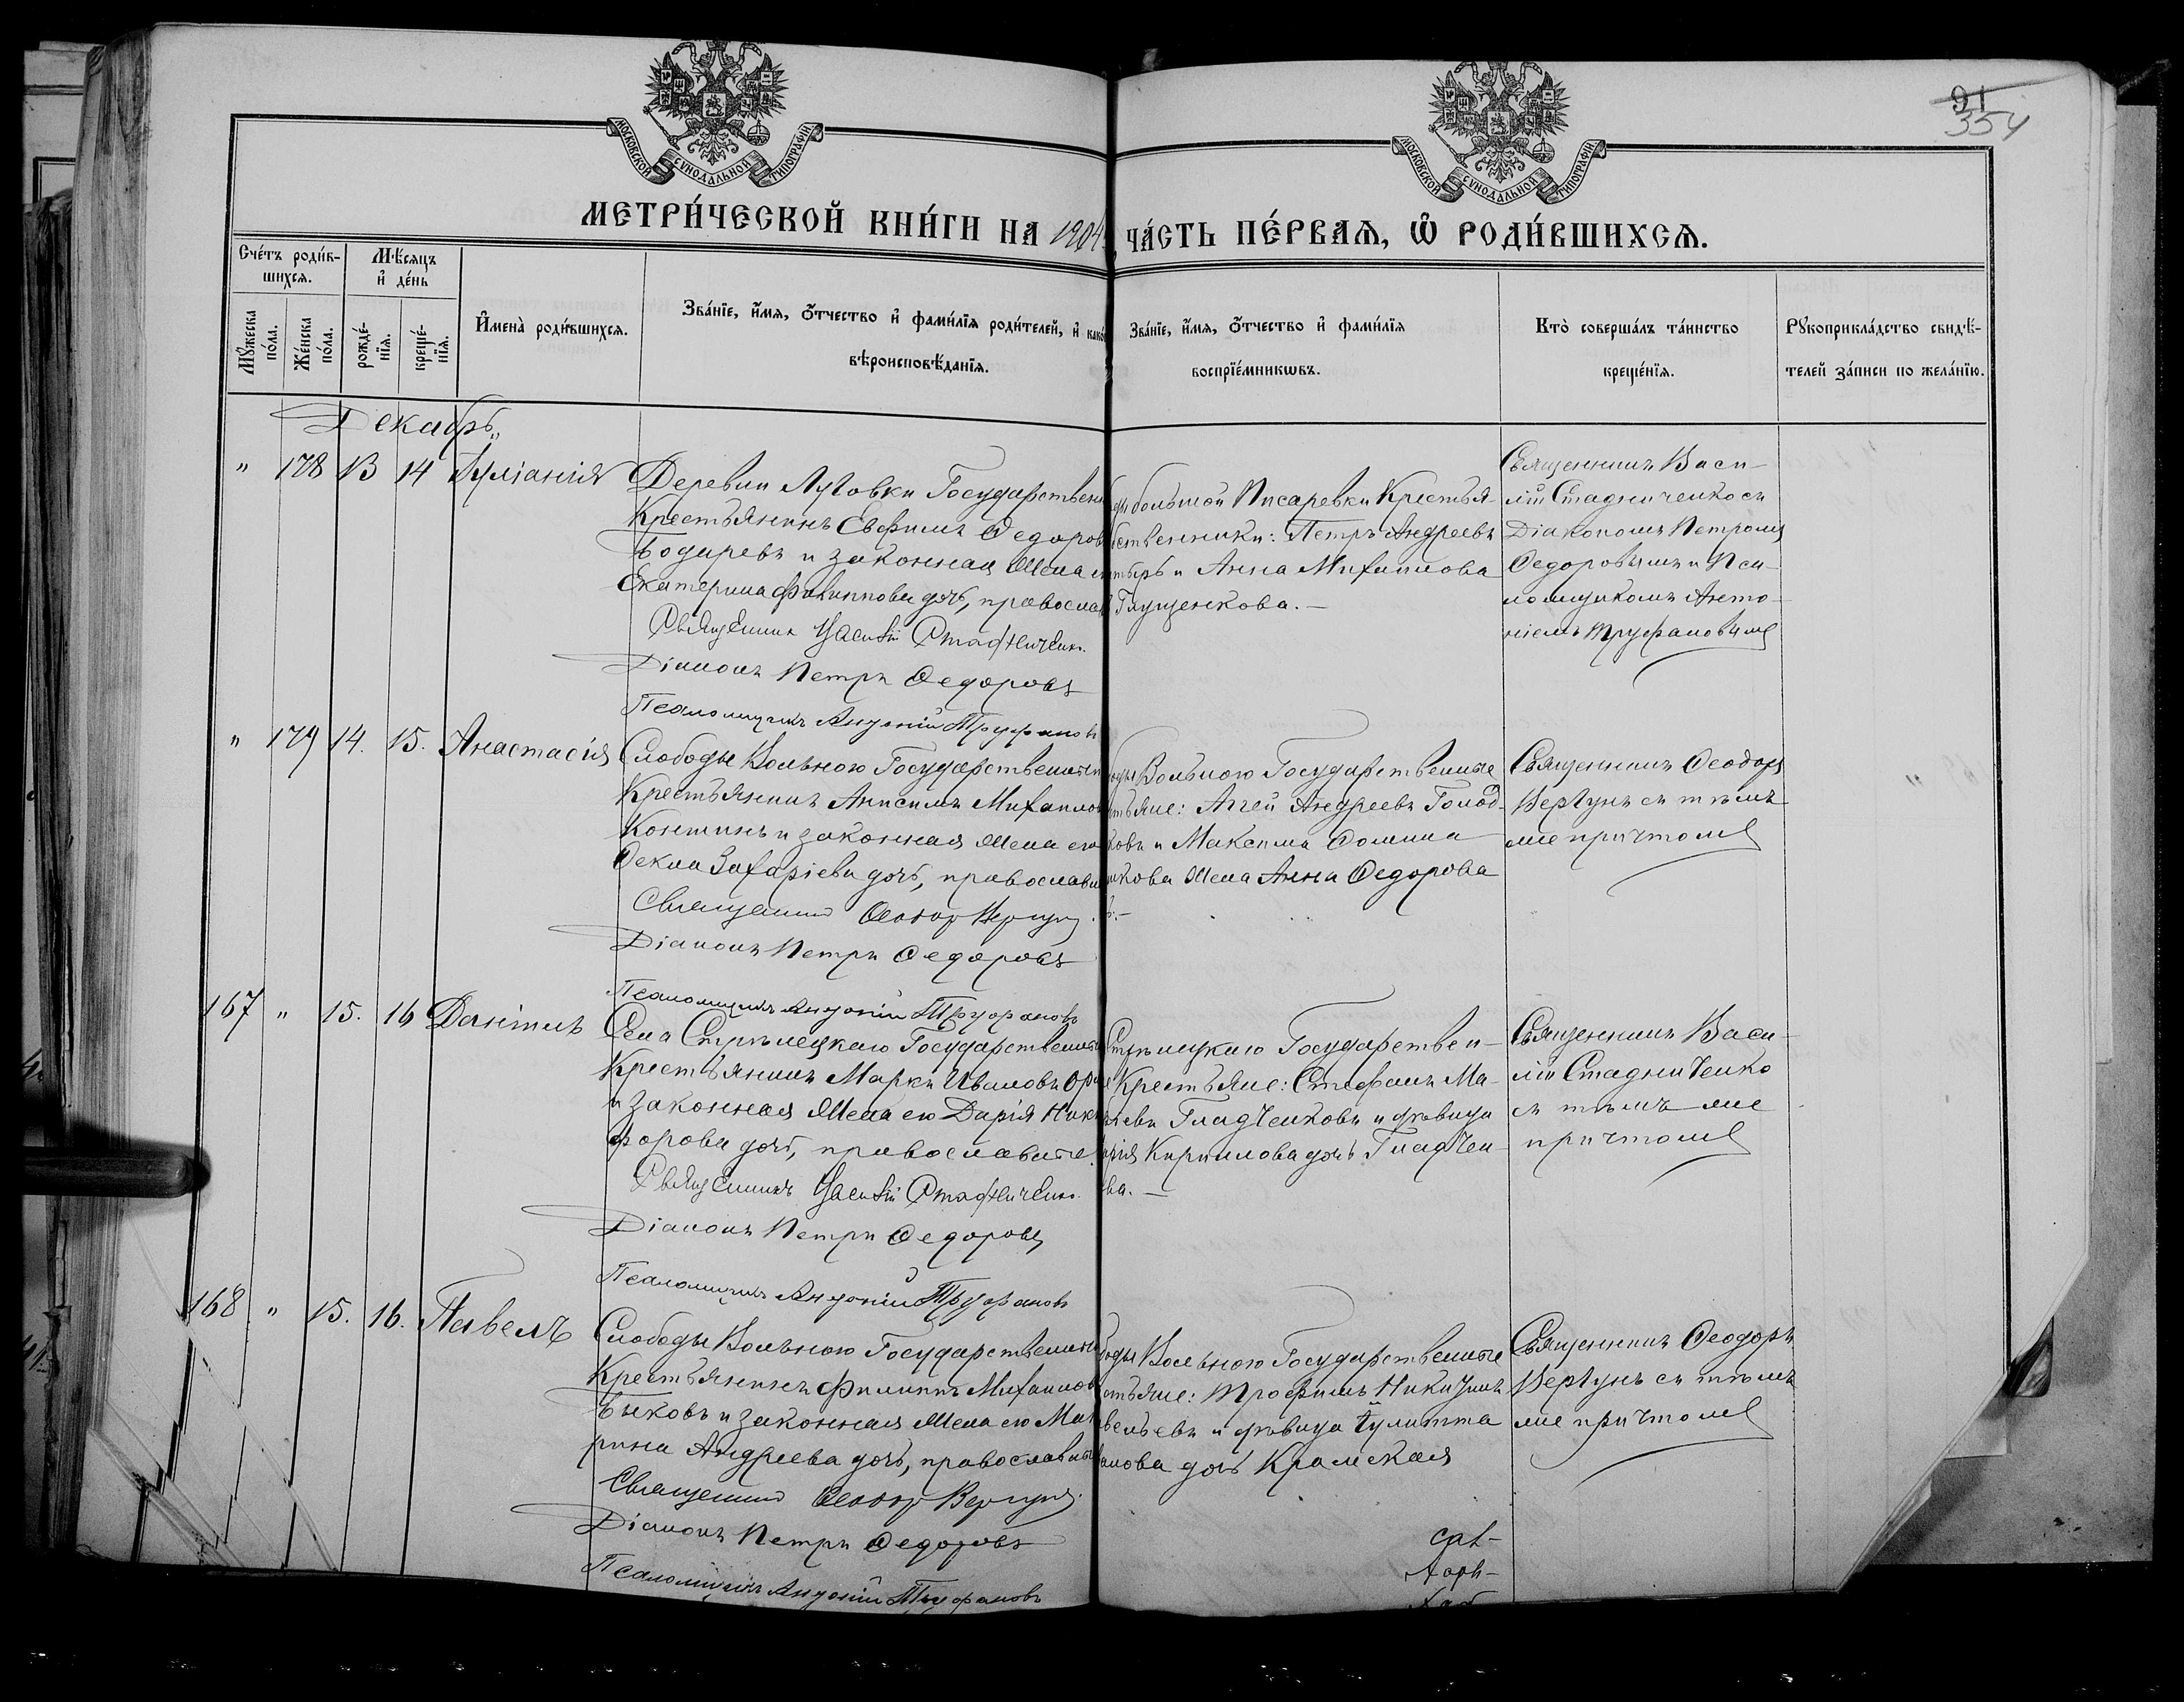 91
354
МОСКОВСКОЙ СѴНОДАЛЬНОЙ ТИПОГРАФІИ
МОСКОВСКОЙ СѴНОДАЛЬНОЙ ТИПОГРАФІИ
МЕТРИ́ЧЕСКОЙ КНИ́ГИ НА 1904
ЧА́СТЬ ПЕ́РВАЯ, Ѡ҆ РОДИ́ВШИХСЯ.
Сче́тъ роди́в-
шихся.
Мѣ́сяцъ
и҆ де́нь
Мꙋ́жеска
по́ла.
Же́нска
по́ла.
рожде́-
нїя.
креще́-
нїя.
И҆мена̀ роди́вшихся.
Зва́нїе, и҆́мя, о҆́тчество и҆ фами́лїя роди́телей, и҆ како
вѣроисповѣ́данїя.
Зва́нїе, и҆́мя, о҆́тчество и҆ фами́лїя
воспрїе́мникѡвъ.
Кто̀ соверша́лъ та́инство
креще́нїя.
Рꙋкоприкла́дство свидѣ́-
телей за́писи по жела́нїю.
Декабрь
" 178 13 14 Іуліанія
Деревни Луговки Государствен
Крестьянинъ Евфимъ Ѳедоров
Бодаревъ и законная жена
Екатерина Филиппова дочь, православ
Священник Василій Стадниченко
Діаконъ Петръ Ѳедоровъ
Псаломщикъ Антоній Труфановъ
ды большой Писаревки Крестья-
бственники: Петръ Андреевъ
тырь и Анна Михаилова
Глущенкова. —
Священникъ Васи-
лій Стадниченко съ
Діакономъ Петромъ
Ѳедоровымъ и Пса-
ломщикомъ Анто-
ніемъ Труфановымъ
" 179 14. 15. Анастасія
Слободы Вольного Государственный
Крестьянинъ Анисимъ Михаилов
Континъ и законная жена его
Ѳекла Захаріева дочь, православн
Священник Ѳеодор Вергунъ
Діаконъ Петръ Ѳедоровъ
Псаломщикъ Антоній Труфановъ
оды Вольного Государственные
стьяне: Аггей Андреевъ Голод-
ковъ и Максима Ѳомина
шкова жена Анна Ѳедорова
ь. —
Священникъ Ѳеодоръ
Вергунъ съ тѣмъ
же причтомъ
167 " 15. 16 Даніилъ
Села Стрѣлецкаго Государственный
Крестьянинъ Маркъ Ивановъ
и законная жена его Дарія Ники
форова дочь, православные.
Священникъ Василій Стадниченко
Діаконъ Петръ Ѳедоровъ
Псаломщикъ Антоній Труфановъ
Стрѣлецкаго Государствен-
е Крестьяне: Стефанъ Ма-
ѳеевъ Гладченковъ и дѣвица
арія Кириллова дочь Гладчен-
ва. —
Священникъ Васи-
лій Стадниченко
съ тѣмъ же
причтомъ
168 " 15. 16. Павелъ
Слободы Вольного Государственный
Крестьянинъ Филиппъ Михаилов
Быковъ и законная жена его Ма
рина Андреева дочь, православные
Священник Ѳеодор Вергунъ.
Діаконъ Петръ Ѳедоровъ
Псаломщикъ Антоній Труфановъ
оды Вольного Государственные
стьяне: Трофимъ Никитинъ
вельевъ и дѣвица Іулитта
анова дочь Крамская
Священникъ Ѳеодоръ
Вергунъ съ тѣмъ
же причтомъ